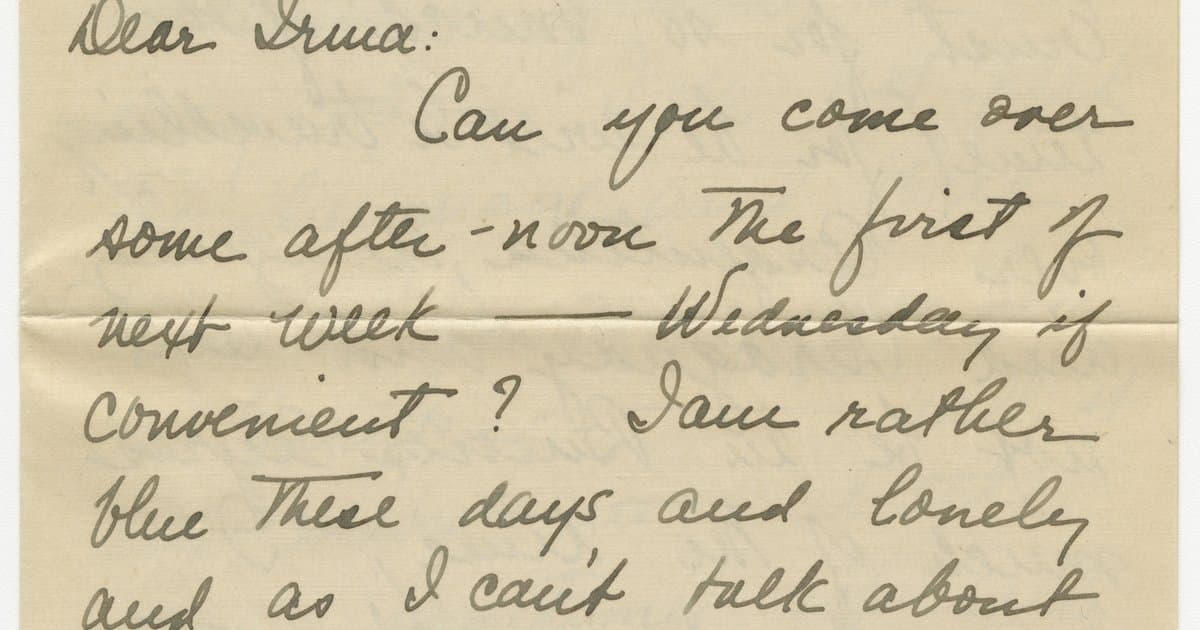 Dear Irma:
Can you come over
some after-noon the first of
next week — Wednesday if
convenient? I am rather
blue these days and lonely
and as I can't talk about